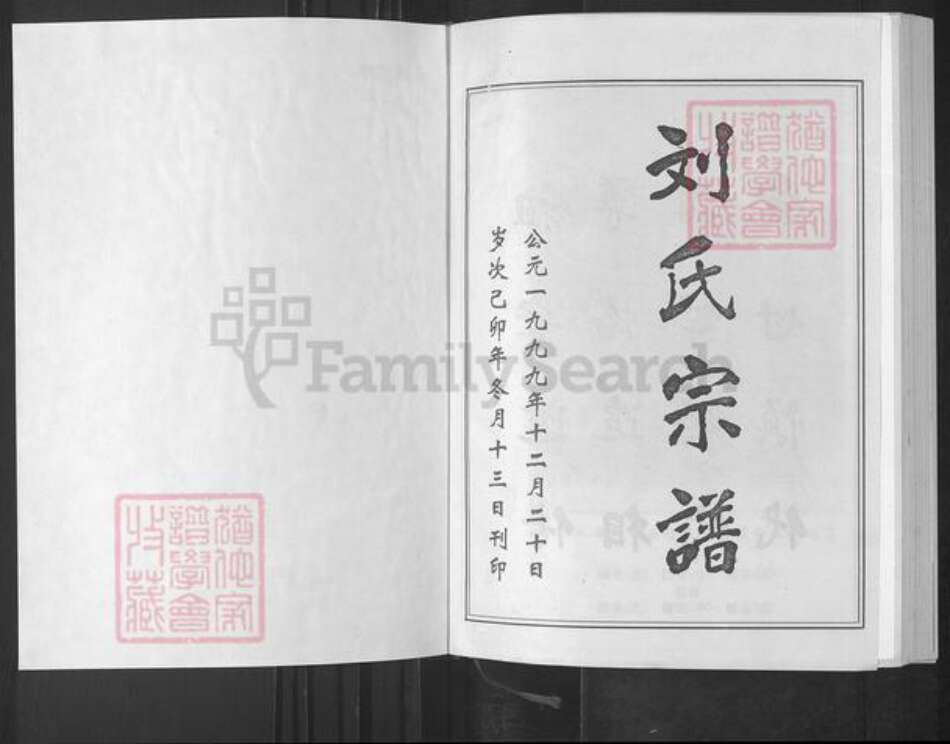 刘氏宗譜
公元一九九九年十二月二十日
岁次己卯年冬月十三日刊印
猶他家
譜學會
收藏
猶他家
譜學會
收藏
FamilySearch